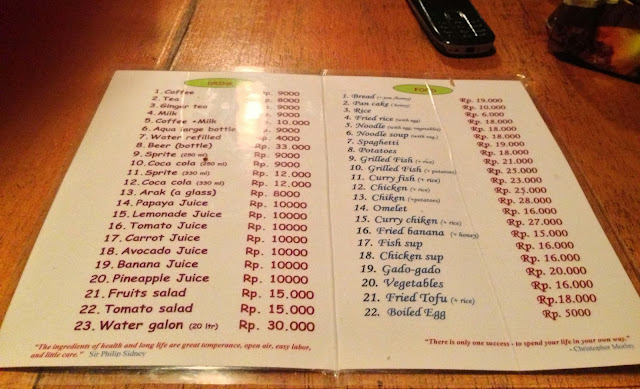 DRINK
1. Coffee Rp. 9000
2. Tea Rp. 8000
3. Ginger tea Rp. 9000
4. Milk Rp. 9000
5. Coffee +Milk Rp. 10.000
6. Aqua large bottle Rp. 9000
7. Water refilled Rp. 4000
8. Beer (bottle) Rp. 33.000
9. Sprite (250 ml) Rp. 9000
10. Coca cola (250 ml) Rp. 9000
11. Sprite (330 ml) Rp. 12.000
12. Coca cola (330 ml) Rp. 12.000
13. Arak (a glass) Rp. 8000
14. Papaya Juice Rp. 10000
15. Lemonade Juice Rp. 10000
16. Tomato Juice Rp. 10000
17. Carrot Juice Rp. 10000
18. Avocado Juice Rp. 10000
19. Banana Juice Rp. 10000
20. Pineapple Juice Rp. 10000
21. Fruits salad Rp. 15.000
22. Tomato salad Rp. 15.000
23. Water galon (20 ltr) Rp. 30.000
"The ingredients of health and long life are great temperance, open air, easy labor,
and little care." Sir Philip Sidney
FOOD
1. Bread Rp. 19.000
2. Pan cake (honey) Rp. 10.000
3. Rice Rp. 6.000
4. Fried rice (with egg) Rp. 18.000
5. Noodle (with egg, vegetables) Rp. 18.000
6. Noodle soup (with egg) Rp. 18.000
7. Spaghetti Rp. 19.000
8. Potatoes Rp. 18.000
9. Grilled Fish (+ rice) Rp. 21.000
10. Grilled Fish (+ potatoes) Rp. 25.000
11. Curry fish (+ rice) Rp. 23.000
12. Chicken (+ rice) Rp. 25.000
13. Chiken (+potatoes) Rp. 28.000
14. Omelet Rp. 16.000
15. Curry chiken (+ rice) Rp. 27.000
16. Fried banana (+ honey) Rp. 15.000
17. Fish sup Rp. 16.000
18. Chicken sup Rp. 16.000
19. Gado-gado Rp. 20.000
20. Vegetables Rp. 16.000
21. Fried Tofu (+ rice) Rp.18.000
22. Boiled Egg Rp. 5000
"There is only one success - to spend your life in your own way."
- Christopher Morley